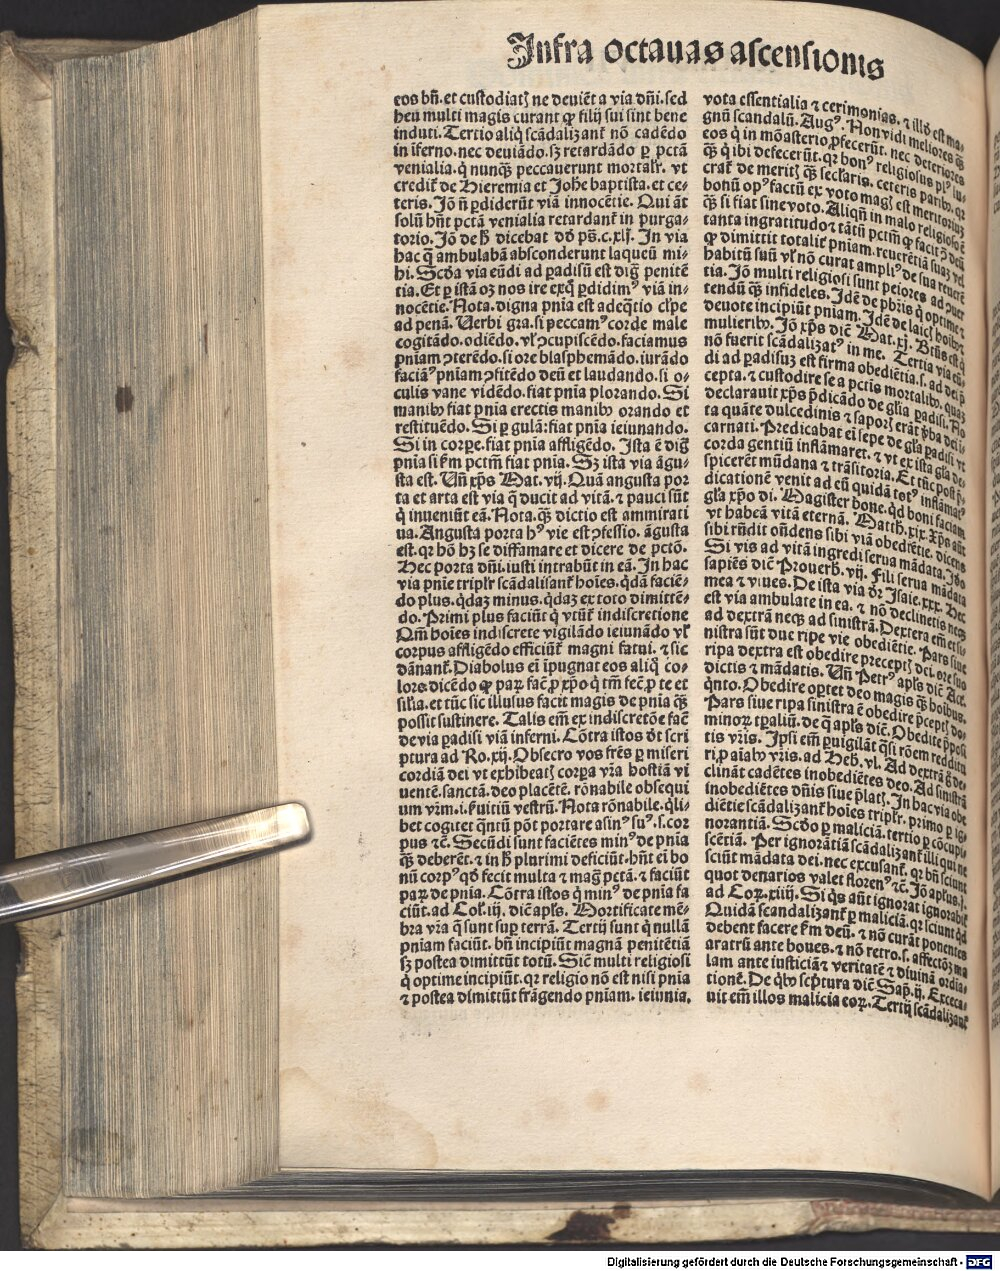 Infra octauas ascensionis
eos bn̄. et custodiāt ne deuiēt a via dn̄i. sed
heu multi magis curant ꝙ filij sui sint bene
induti. Tertio aliq̄ scādalizant nō cadēdo
in īferno. nec deuiādo. sꝫ retardādo ꝑ pctā
venialia. q̇ nunqͣꝫ peccauerunt mortalr̄. vt
credit̄ de Hieremia et Joh̄e baptista. et ce-
teris. Jō n̄ ꝑdiderūt viā innocētie. Qui āt
solū hn̄t pctā venialia retardant̄ in purga-
torio. Jō de h̄ dicebat dd̄ pš. c.xlj. In via
hac q̄ ambulabā absconderunt laqueū mi-
hi. Scd̄a via eūdi ad ꝑadisū est dign̄ penitē
tia. Et ꝑ istā oꝫ nos ire exq̄ ꝑdidimꝰ viā in-
nocētie. Nota. digna pn̄ia est adeq̄tio cl̄pe
ad penā. Verbi gr̄a. si peccamꝰ corde male
cogitādo. odiēdo. vl̄ ꝯcupiscēdo. faciamus
pn̄iam ꝯterēdo. si ore blasphemādo. iurādo
faciāꝰ pn̄iam ꝯfitēdo deū et laudando. si o-
culis vane vidēdo. fiat pn̄ia plorando. Si
manibꝰ fiat pn̄ia erectis manibꝰ orando et
restituēdo. Si ꝑ gulā: fiat pn̄ia ieiunando.
Si in corpe. fiat pn̄ia affligēdo. Ista ē dign̄
pn̄ia si ẜm pctm̄ fiat pn̄ia. Sꝫ ista via āgu-
sta est. Un̄ xp̄s Mat. vij. Quā angusta por
ta et arta est via q̄ ducit ad vitā. ⁊ pauci sūt
q̇ inueniūt eā. Nota. qͣꝫ dictio est ammirati
ua. Angusta porta hꝰ vie est ꝯfessio. āgusta
est. qꝛ hō hꝫ se diffamare et dicere de pctō.
Hec porta dn̄i. iusti intrabūt in eā. In hac
via pnīe triplr̄ scādalisant̄ hoīes. q̇dā faciē-
do plus. q̇daꝫ minus. q̇daꝫ ex toto dimittē-
do. Primi plus faciūt q̇ vtūt̄ indiscretione
Qm̄ hoīes indiscrete vigilādo ieiunādo vl̄
corpus affligēdo efficiūt̄ magni fatui. ⁊ sic
dānant̄. Diabolus ei īpugnat eos aliq̄ co-
lore. dicēdo ꝙ paꝝ fac̄ ꝓ xp̄o q̇ tm̄ fec̄ ꝓ te et
silia. et tūc sic illusus facit magis de pn̄ia qͣꝫ
possit sustinere. Talis em̄ ex indiscretōe fac̄
de via ꝑadisi viā inferni. Cōtra istos dr̄ scri
ptura ad Ro. xij. Obsecro vos fr̄es ꝑ miseri
cordiā dei vt exhibeatꝭ corꝑa vr̄a hostiā vi
uentē. sanctā. deo placētē. rōnabile obsequi
um vr̄m. i. ẜuitiū vestrū. Nota rōnabile. q̇li-
bet cogitet qn̄tū pōt portare asinꝰ suꝰ. s. cor
pus ⁊c̄. Secūdi sunt faciētes minꝰ de pn̄ia
qͣꝫ deberēt. ⁊ in h̄ plurimi deficiūt. hn̄t ei bo
nū corpꝰ qd̄ fecit multa ⁊ magͣ pctā. ⁊ faciūt
paꝝ de pn̄ia. Cōtra istos q̇ minꝰ de pn̄ia fa
ciūt. ad Col̄. iij. dic̄ apl̄s. Mortificate mē-
bra vr̄a q̄ sunt suꝑ terrā. Tertij sunt q̇ nullā
pn̄iam faciūt. bn̄ incipiūt magnā penitētiā
sꝫ postea dimittūt totū. Sic̄ multi religiosi
q̇ optime incipiūt. qꝛ religio nō est nisi pn̄ia
⁊ postea dimittūt frāgendo pn̄iam. ieiunia.
vota essentialia ⁊ cerimonias. ⁊ illd̄ est ma-
gnū scandalū. Augꝰ. Non vidi meliores qͣꝫ
eos q̇ in mōasterio ꝓfecerūt. nec deteriores
qͣꝫ q̇ ibi defecerūt. qꝛ bonꝰ religiosus plꝰ lu-
crat̄ de meritꝭ qͣꝫ sec̄laris. ceteris paribꝰ. qꝛ
bonū opꝰ factū ex voto magꝭ est meritoriuꝫ
qͣꝫ si fiat sine voto. Aliqn̄ in malo religioso ē
tanta ingratitudo ⁊ tātū pctm̄ ꝙ facit ꝯ deū
ꝙ dimittit totalit̄ pn̄iam. reuerētiā suaꝫ vel
habitū suū vl̄ nō curat ampliꝰ de sua reuerē
tia. Jō multi religiosi sunt peiores ad ꝯuer
tendū qͣꝫ infideles. Idē de pbr̄is q̇ optime ⁊
deuote incipiūt pn̄iam. Idē de laicꝭ hoībꝰ ⁊
mulieribꝰ. Jō xp̄s dic̄ Mat. xj. Btūs est q̇
nō fuerit scādalizatꝰ in me. Tertia via eū-
di ad ꝑadisuꝫ est firma obediētia. s. ad dei p̄
cepta. ⁊ custodire se a pctis mortalibꝰ. quaꝫ
declarauit xp̄s p̄dicādo de gl̄ia ꝑadisi. No
ta quāte dulcedinis ⁊ saporꝭ erāt v̄ba dei i
carnati. Predicabat ei sepe de gl̄a ꝑadisi vt
corda gentiū inflāmaret. ⁊ vt ex ista gl̄a de-
spicerēt mūdana ⁊ trāsitoria. Et tūc post p̄-
dicationē venit ad eū quidā totꝰ inflāmatꝰ
gl̄a xp̄o di. Magister bone. qd̄ boni faciam
vt habeā vitā eternā. Matth. xix. Xp̄s aūt
sibi rn̄dit on̄dens sibi viā obediētie. dicens
Si vis ad vitā ingredi serua mādata. Jdō
sapiēs dic̄ Prouerb. vij. Fili serua mādata
mea ⁊ viues. De ista via dr̄ Isaie. xxx. Hec
est via ambulate in ea. ⁊ nō declinetis neqꝫ
ad dextrā neqꝫ ad sinistrā. Dextera em̄ et si-
nistra sūt due ripe vie obediētie. Pars siue
ripa dextra est obedire preceptꝭ dei. ore suo
dictis ⁊ mādatis. Un̄ Petrꝰ apl̄s dic̄ Act.
q̇nto. Obedire oꝑtet deo magis qͣꝫ hoībus.
Pars siue ripa sinistra ē obedire p̄ceptꝭ do-
minoꝝ tꝑaliū. de q̇ apl̄s dic̄. Obedite p̄posi
tis vr̄is. Ipsi em̄ ꝑuigilāt qͣsi rōem redditu
ri ꝓ aīabꝰ vr̄is. ad Heb. vl̄. Ad dextrā g̊ de-
clināt cadētes inobediētes deo. Ad sinistrā
inobediētes dn̄is siue p̄latꝭ. In hac via obe
diētie scādalizant̄ hoīes triplr̄. primo ꝑ ig-
norantiā. Scd̄o ꝑ maliciā. tertio ꝑ cōcupi-
scētiā. Per ignorātiā scādalizant̄ illi qui ne
sciūt mādata dei. nec excusant̄. qꝛ bn̄ sciunt
quot denarios valet florenꝰ ⁊c̄. Jō apl̄us. j.
ad Coꝝ. xiiij. Si q̇s aūt ignorat ignorabit̄
Quidā scandalizant̄ ꝑ maliciā. qꝛ sciunt qd̄
debent facere ẜm deū. ⁊ nō curāt ponentes
aratrū ante boues. ⁊ nō retro. s. affectōꝫ ma
lam ante iusticiā ⁊ veritatē ⁊ diuinā ordia-
tionē. De q̇bꝰ sc̄ptura dic̄ Sap̄. ij. Exceca-
uit em̄ illos malicia eoꝝ. Tertij scādalizant̄
Digitalisierung gefördert durch die Deutsche Forschungsgemeinschaft - DFG